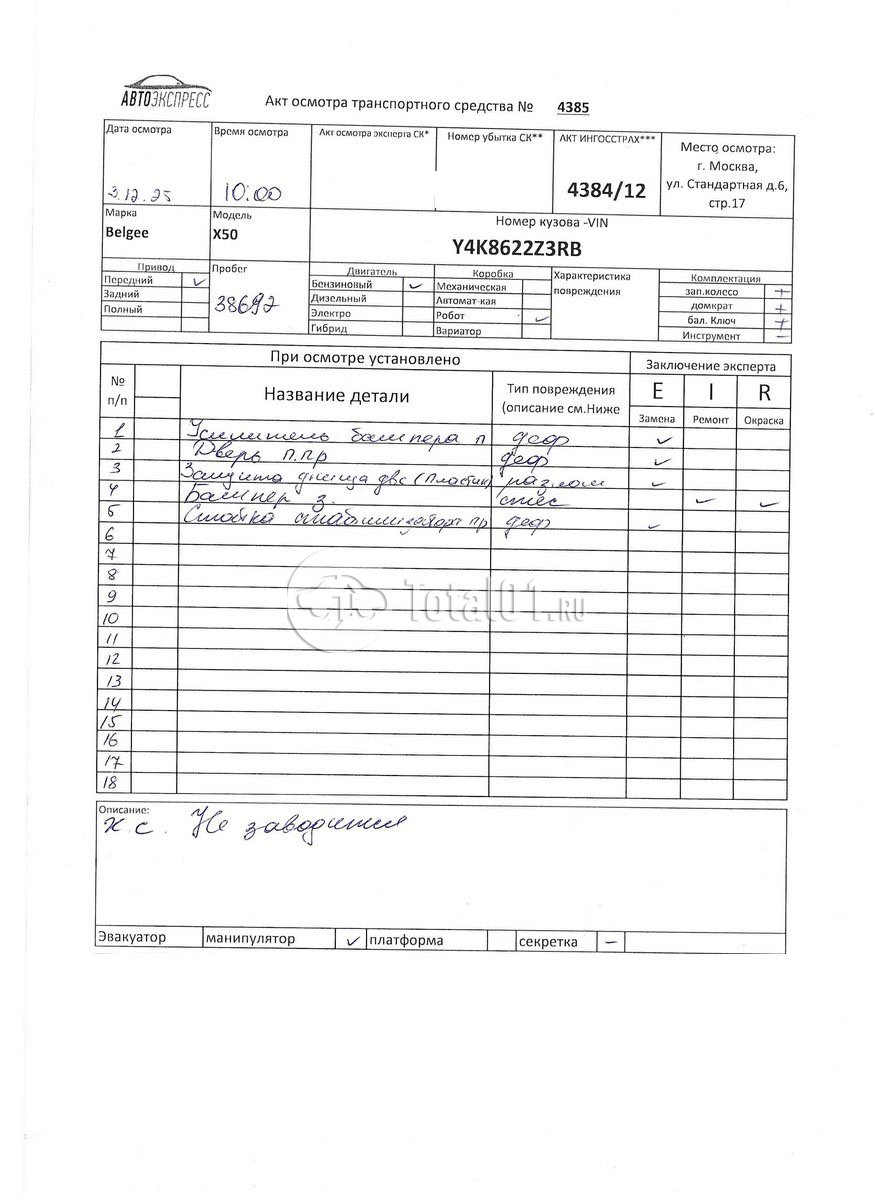 АВТОЭКСПРЕСС
Акт осмотра транспортного средства № 4385
Дата осмотра
Время осмотра
Акт осмотра эксперта СК*
Номер убытка СК**
АКТ ИНГОССТРАХ***
Место осмотра:
г. Москва,
ул. Стандартная д.6,
стр.17
3.12.25
10:00
4384/12
Марка
Модель
Номер кузова -VIN
Belgee
X50
Y4K8622Z3RB
Привод
Пробег
Двигатель
Коробка
Характеристика
повреждения
Комплектация
Передний ✓
Бензиновый ✓
Механическая
зап.колесо +
Задний
38692
Дизельный
Автомат-кая
домкрат +
Полный
Электро
Робот ✓
бал. Ключ +
Гибрид
Вариатор
Инструмент –
При осмотре установлено
Заключение эксперта
№
п/п
Название детали
Тип повреждения
(описание см.Ниже
E I R
Замена Ремонт Окраска
1 Усилитель бампера п деф ✓
2 Дверь п.пр деф ✓
3 Защита днища двс (пластик) разлом ✓
4 Бампер з. стес ✓ ✓
5 Стойка стабилизатора пр деф ✓
6
7
8
9
Total01.RU
10
11
12
13
14
15
16
17
18
Описание:
х.с. Не заводится
Эвакуатор манипулятор ✓ платформа секретка –